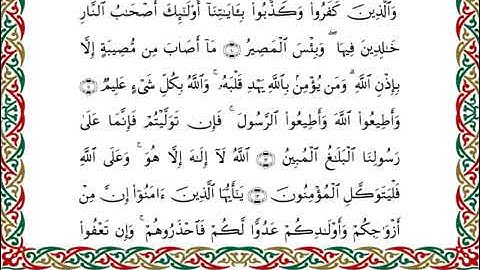 وَٱلَّذِينَ كَفَرُوا۟ وَكَذَّبُوا۟ بِـَٔايَـٰتِنَآ أُو۟لَـٰٓئِكَ أَصْحَـٰبُ ٱلنَّارِ
خَـٰلِدِينَ فِيهَا ۖ وَبِئْسَ ٱلْمَصِيرُ ۝١٠ مَآ أَصَابَ مِن مُّصِيبَةٍ إِلَّا
بِإِذْنِ ٱللَّهِ ۗ وَمَن يُؤْمِنۢ بِٱللَّهِ يَهْدِ قَلْبَهُۥ ۚ وَٱللَّهُ بِكُلِّ شَىْءٍ عَلِيمٌ ۝١١
وَأَطِيعُوا۟ ٱللَّهَ وَأَطِيعُوا۟ ٱلرَّسُولَ ۚ فَإِن تَوَلَّيْتُمْ فَإِنَّمَا عَلَىٰ
رَسُولِنَا ٱلْبَلَـٰغُ ٱلْمُبِينُ ۝١٢ ٱللَّهُ لَآ إِلَـٰهَ إِلَّا هُوَ ۚ وَعَلَى ٱللَّهِ
فَلْيَتَوَكَّلِ ٱلْمُؤْمِنُونَ ۝١٣ يَـٰٓأَيُّهَا ٱلَّذِينَ ءَامَنُوٓا۟ إِنَّ مِنْ
أَزْوَٰجِكُمْ وَأَوْلَـٰدِكُمْ عَدُوًّا لَّكُمْ فَٱحْذَرُوهُمْ ۚ وَإِن تَعْفُوا۟